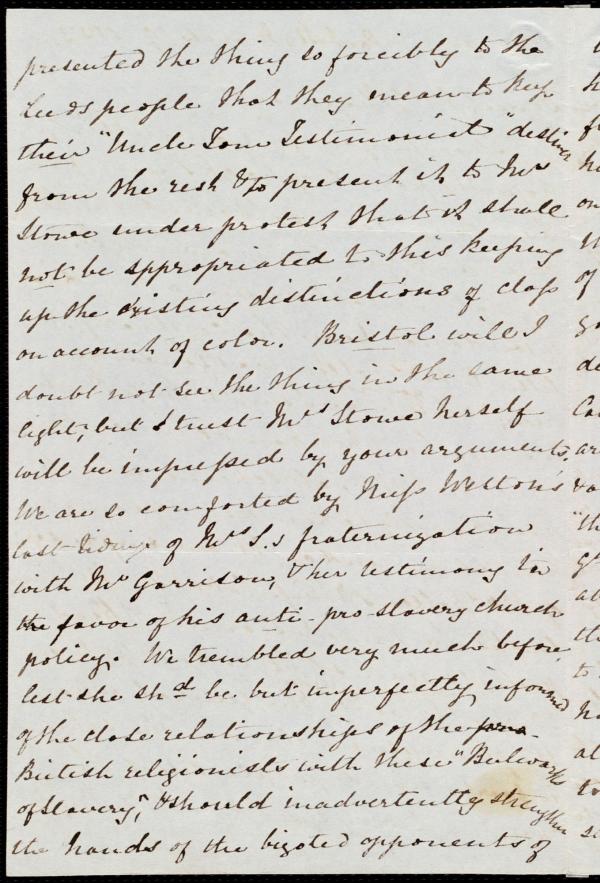 presented the thing so forcibly to the
Leeds people that they mean to keep
their "Uncle Tom Testimonial" distinct
from the rest & to present it to Mrs
Stowe under protest that it shall
not be appropriated to this keeping
up the existing distinctions of class
on account of color. Bristol will I
doubt not see the thing in the same
light, but I trust Mrs Stowe herself
will be impressed by your arguments.
We are so comforted by Miss Weston's
last tidings of Mrs S.s fraternization
with Mr Garrison, & her testimony in
the favor of his anti-pro-slavery church
policy. We trembled very much before,
lest she shd be but imperfectly informed
of the close relationships of the
British religionists with these "Bulwarks
of Slavery", & should inadvertently strengthen
the hands of the bigoted opponents of